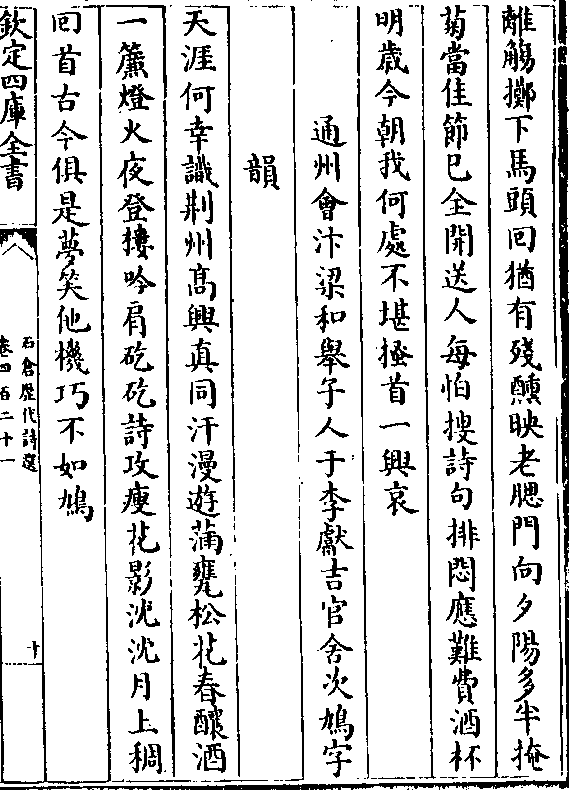 離觴擲下馬頭回猶有殘醺映老腮門向夕陽多半掩
菊當佳節已全開送人每怕搜詩句排悶應難費酒杯
明歳今朝我何處不堪搔首一興哀
通州會汴梁和舉子人于李獻吉官舍次鳩字
韻
天涯何幸識荆州髙興真同汗漫遊蒲甕松花春釀酒
一簾燈火夜登摟吟肩矻矻詩攻瘦花影沈沈月上稠
回首古今俱是夢笑他機巧不如鳩
欽定四庫全書
石倉歴代詩選
卷四百二十一
十